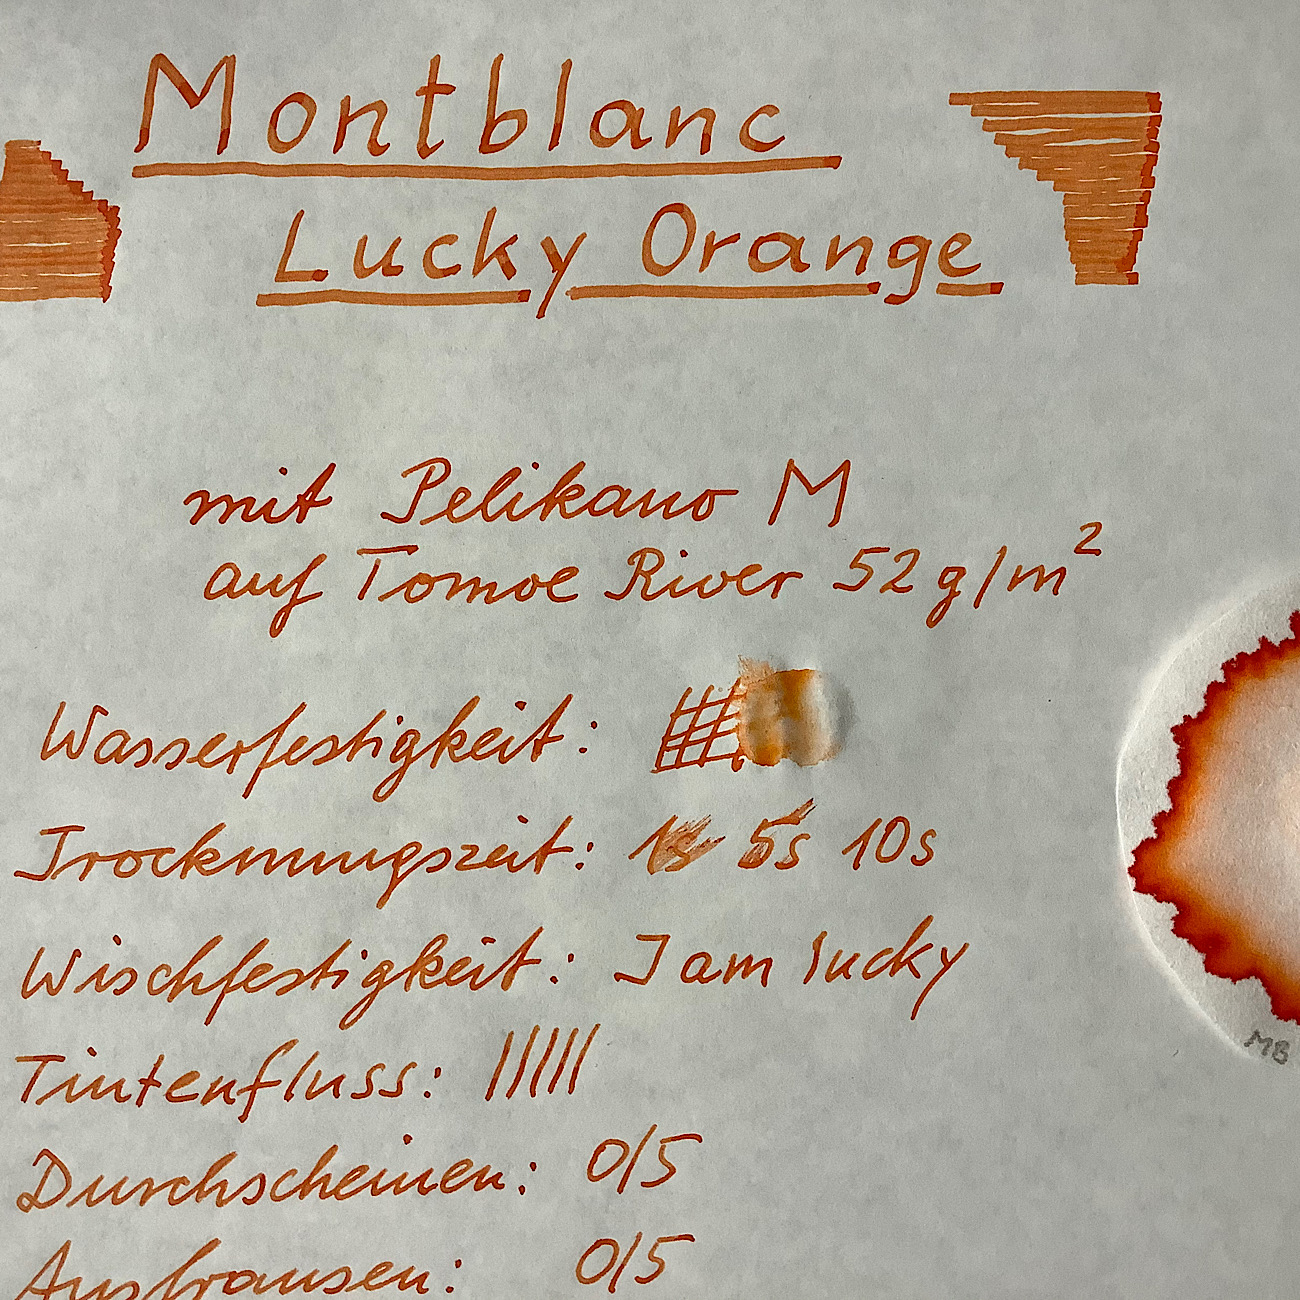 Montblanc
Lucky Orange
mit Pelikano M
auf Tomoe River 52 g/m²
Wasserfestigkeit:
Trocknungszeit: 1s 5s 10s
Wischfestigkeit: I am lucky
Tintenfluss: |||||
MB
Durchscheinen: 0/5
Ausbransen: 0/5